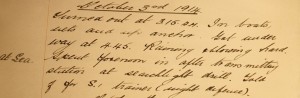 October 3rd 1914.
Turned out at 3.15 a.m. In boats
nets and up anchor. Got under
way at 4.45. Running
At Sea. Spent forenoon in after transmitting
station at searchlight drill.
of for S. trainer (night defence).